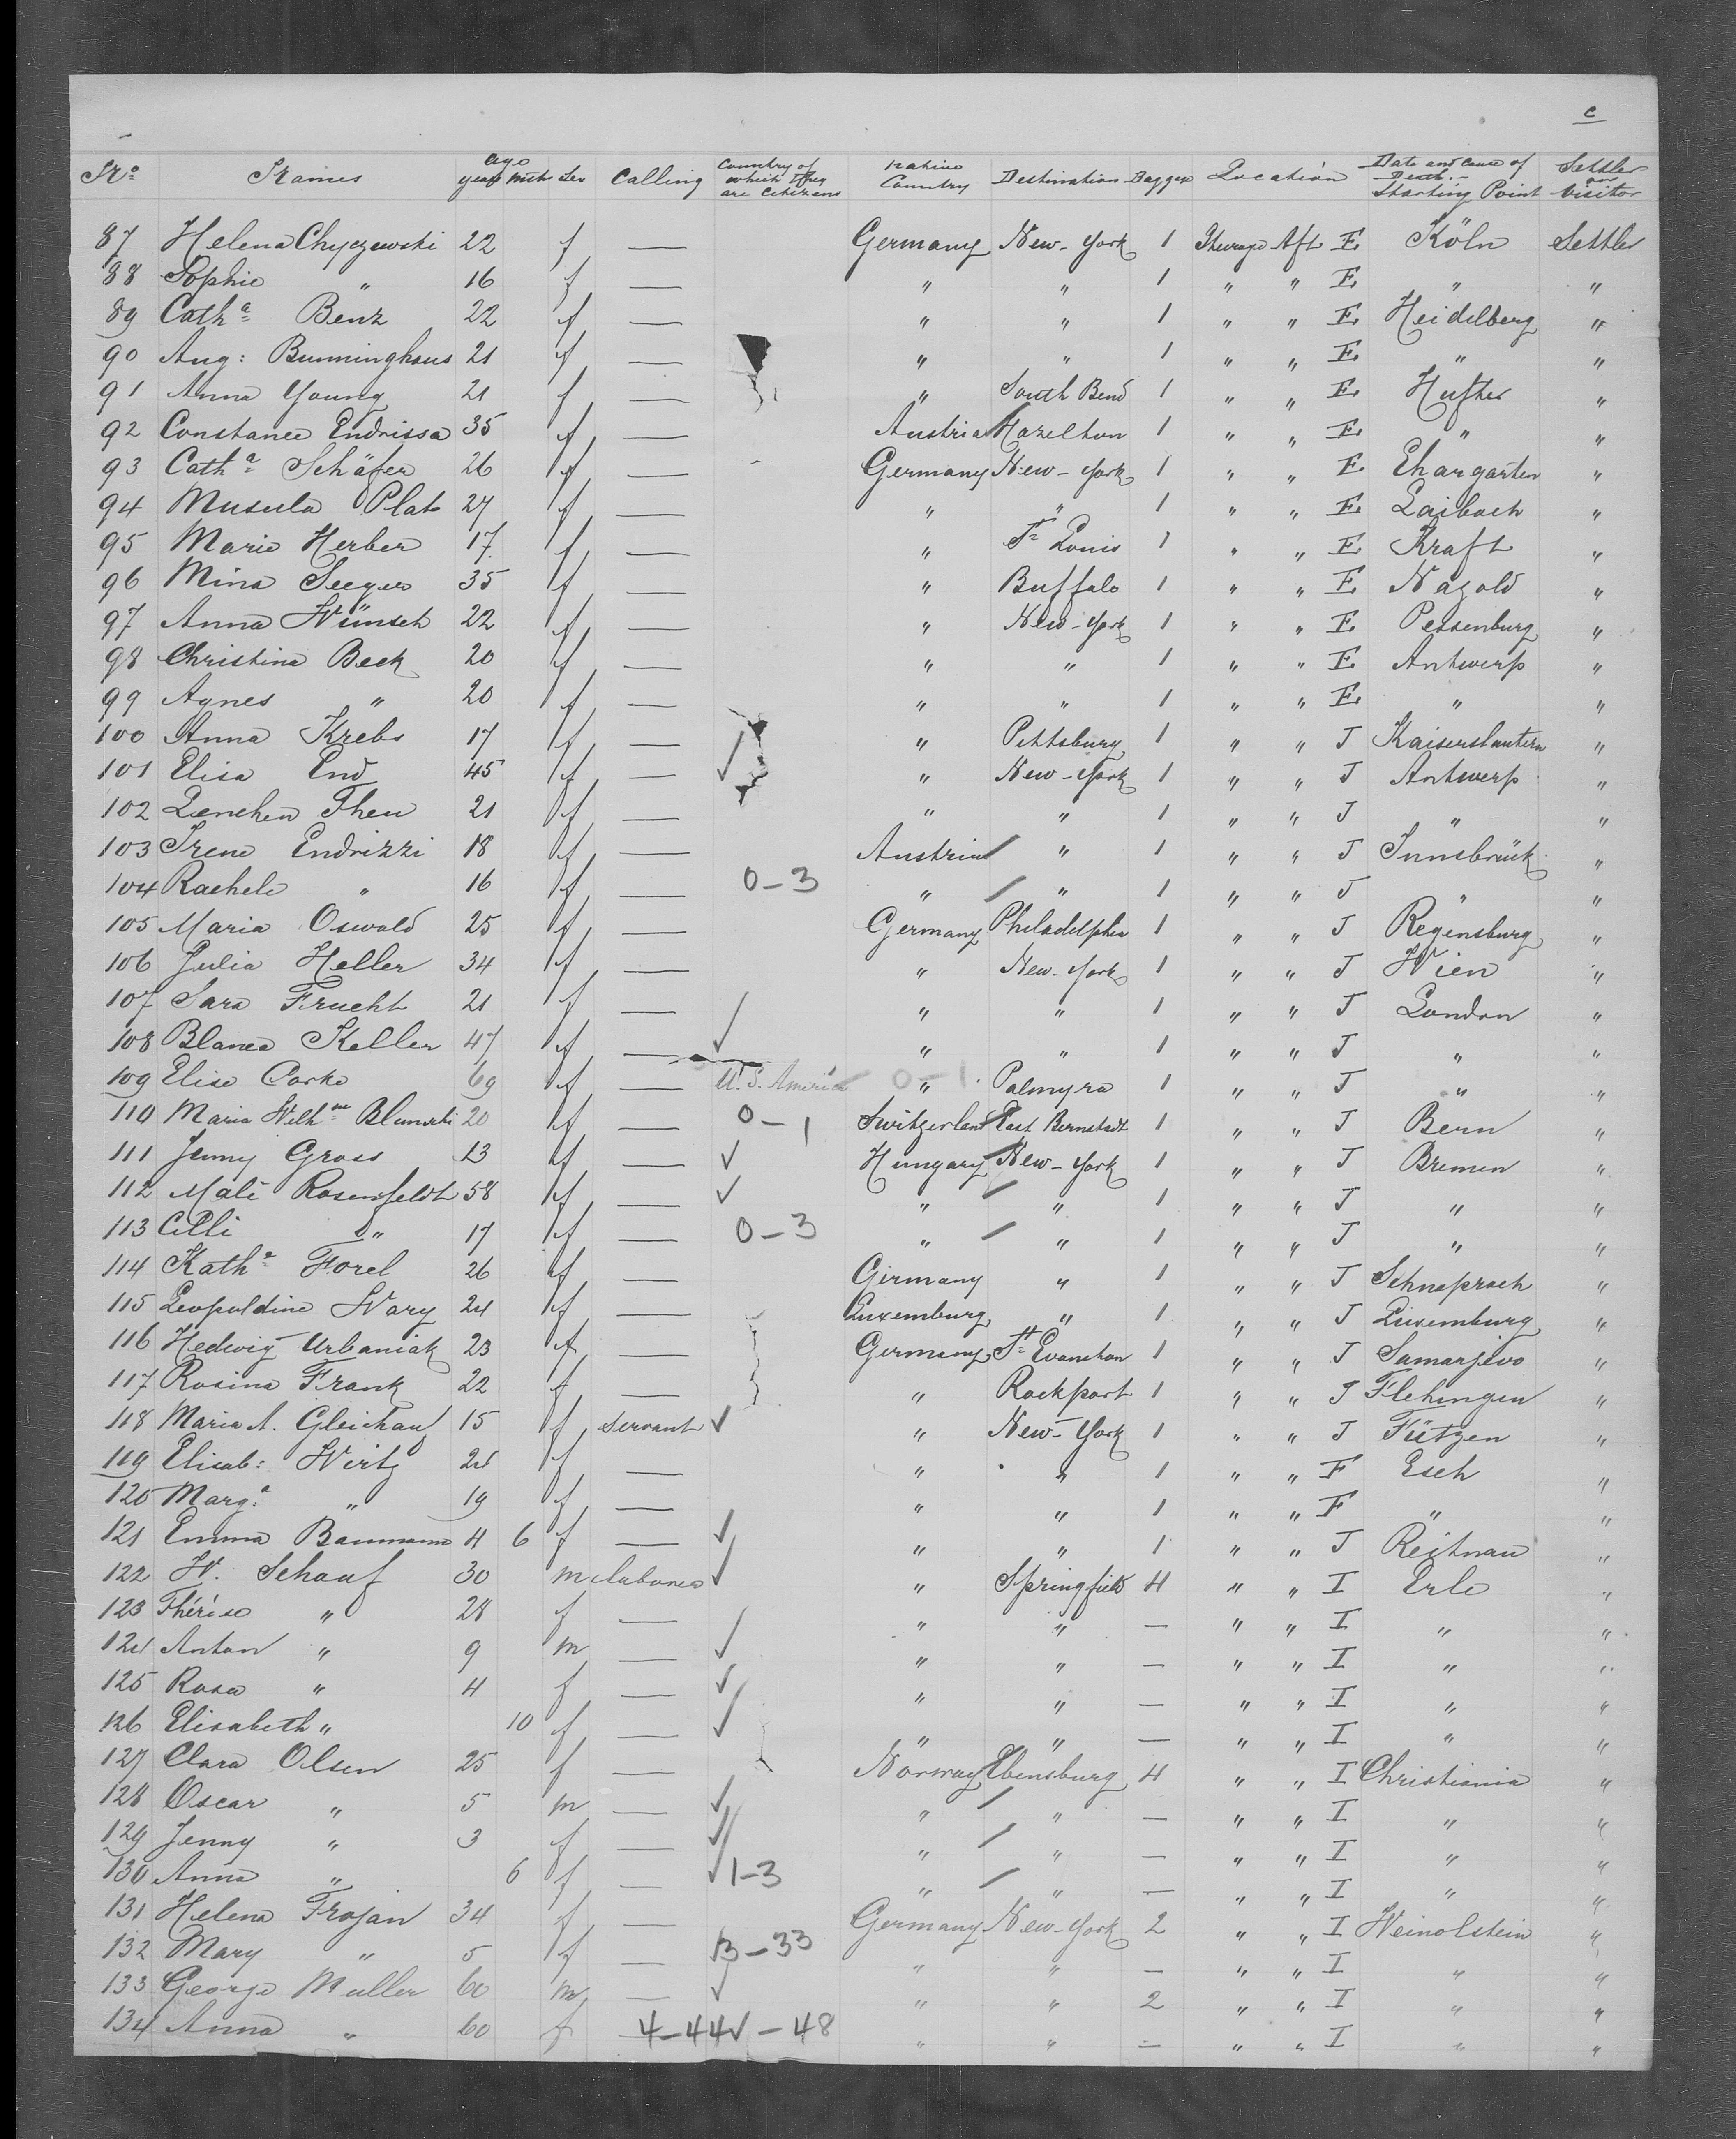 c
No. Names Age years mth Sex Calling Country of which they are Citizens Native Country Destination Bagges Location Date and Cause of Death.- Starting Point Settler or Visitor
87 Helena Chyczewski 22 f — Germany New-York 1 Steerage Aft E Köln Settler
88 Sophie " 16 f — " " 1 " " E " "
89 Catha Benz 22 f — " " 1 " " E Heidelberg "
90 Aug: Bunninghaus 21 f — " " 1 " " E " "
91 Anna Young 21 f — " South Bend 1 " " E Hufter "
92 Constance Endrissa 35 f — Austria Hazelton 1 " " E " "
93 Catha Schäfer 26 f — Germany New-York 1 " " E Ehargarten "
94 Musula Plat 27 f — " " 1 " " E Laibach "
95 Marie Herber 17 f — " St Louis 1 " " E Kraft "
96 Mina Seeger 35 f — " Buffalo 1 " " E Nagold "
97 Anna Wünsch 22 f — " New-York 1 " " E Petsenburg "
98 Christina Beck 20 f — " " 1 " " E Antwerp "
99 Agnes " 20 f — " " 1 " " E " "
100 Anna Krebs 17 f — ✓ " Pittsburg 1 " " J Kaiserslautern "
101 Elisa End 45 f — ✓ " New-York 1 " " J Antwerp "
102 Lenchen Theu 21 f — " " 1 " " J " "
103 Irene Endrizzi 18 f — Austria " 1 " " J Innsbrück "
104 Rachele " 16 f — 0-3 " " 1 " " J " "
105 Maria Oswald 25 f — Germany Philadelphia 1 " " J Regensburg "
106 Julia Heller 34 f — " New-York 1 " " J Wien "
107 Sara Frucht 21 f — " " 1 " " J London "
108 Blanca Keller 47 f — ✓ " " 1 " " J " "
109 Elise Corke 69 f — U.S. America 0-1 " Palmyra 1 " " J " "
110 Maria Wilhme Blumski 20 f 0-1 Switzerland East Bernstadt 1 " " J Bern "
111 Jenny Gross 13 f — ✓ Hungary New-York 1 " " J Bremen "
112 Mali Rosenfeldt 58 f — ✓ " " 1 " " J " "
113 Cilli " 17 f — 0-3 " " 1 " " J " "
114 Katha Forel 26 f — Germany " 1 " " J Schnaprach "
115 Leopoldine Wary 24 f — Luxemburg " 1 " " J Luxemburg "
116 Hedwig Urbaniak 23 f — Germany St Evanston 1 " " J Samarjevo "
117 Rosina Frank 22 f — " Rockport 1 " " J Flehingen "
118 Maria A. Gleichauf 15 f servant ✓ " New-York 1 " " J Fützen "
119 Elisab: Wirtz 24 f — " " 1 " " F Esch "
120 Marga " 19 f — " " 1 " " F " "
121 Emma Baumann 4 6 f — ✓ " " 1 " " J Reitnau "
122 W. Schauf 30 m laborer ✓ " Springfield 4 " " I Erle "
123 Thérèse " 28 f — " " — " " I " "
124 Anton " 9 m — ✓ " " — " " I " "
125 Rosa " 4 f — ✓ " " — " " I " "
126 Elisabeth " 10 f — ✓ " " — " " I " "
127 Clara Olsen 25 f — Norway Ebensburg 4 " " I Christiania "
128 Oscar " 5 m — ✓ " " — " " I " "
129 Jenny " 3 f — ✓ " " — " " I " "
130 Anna " 6 f — ✓ 1-3 " " — " " I " "
131 Helena Trojan 34 f — Germany New-York 2 " " I Weinolstein "
132 Mary " 5 f — 13-33 " " — " " I " "
133 George Muller 60 m — ✓ " " 2 " " I " "
134 Anna " 60 f 4-44✓-48 " " — " " I " "